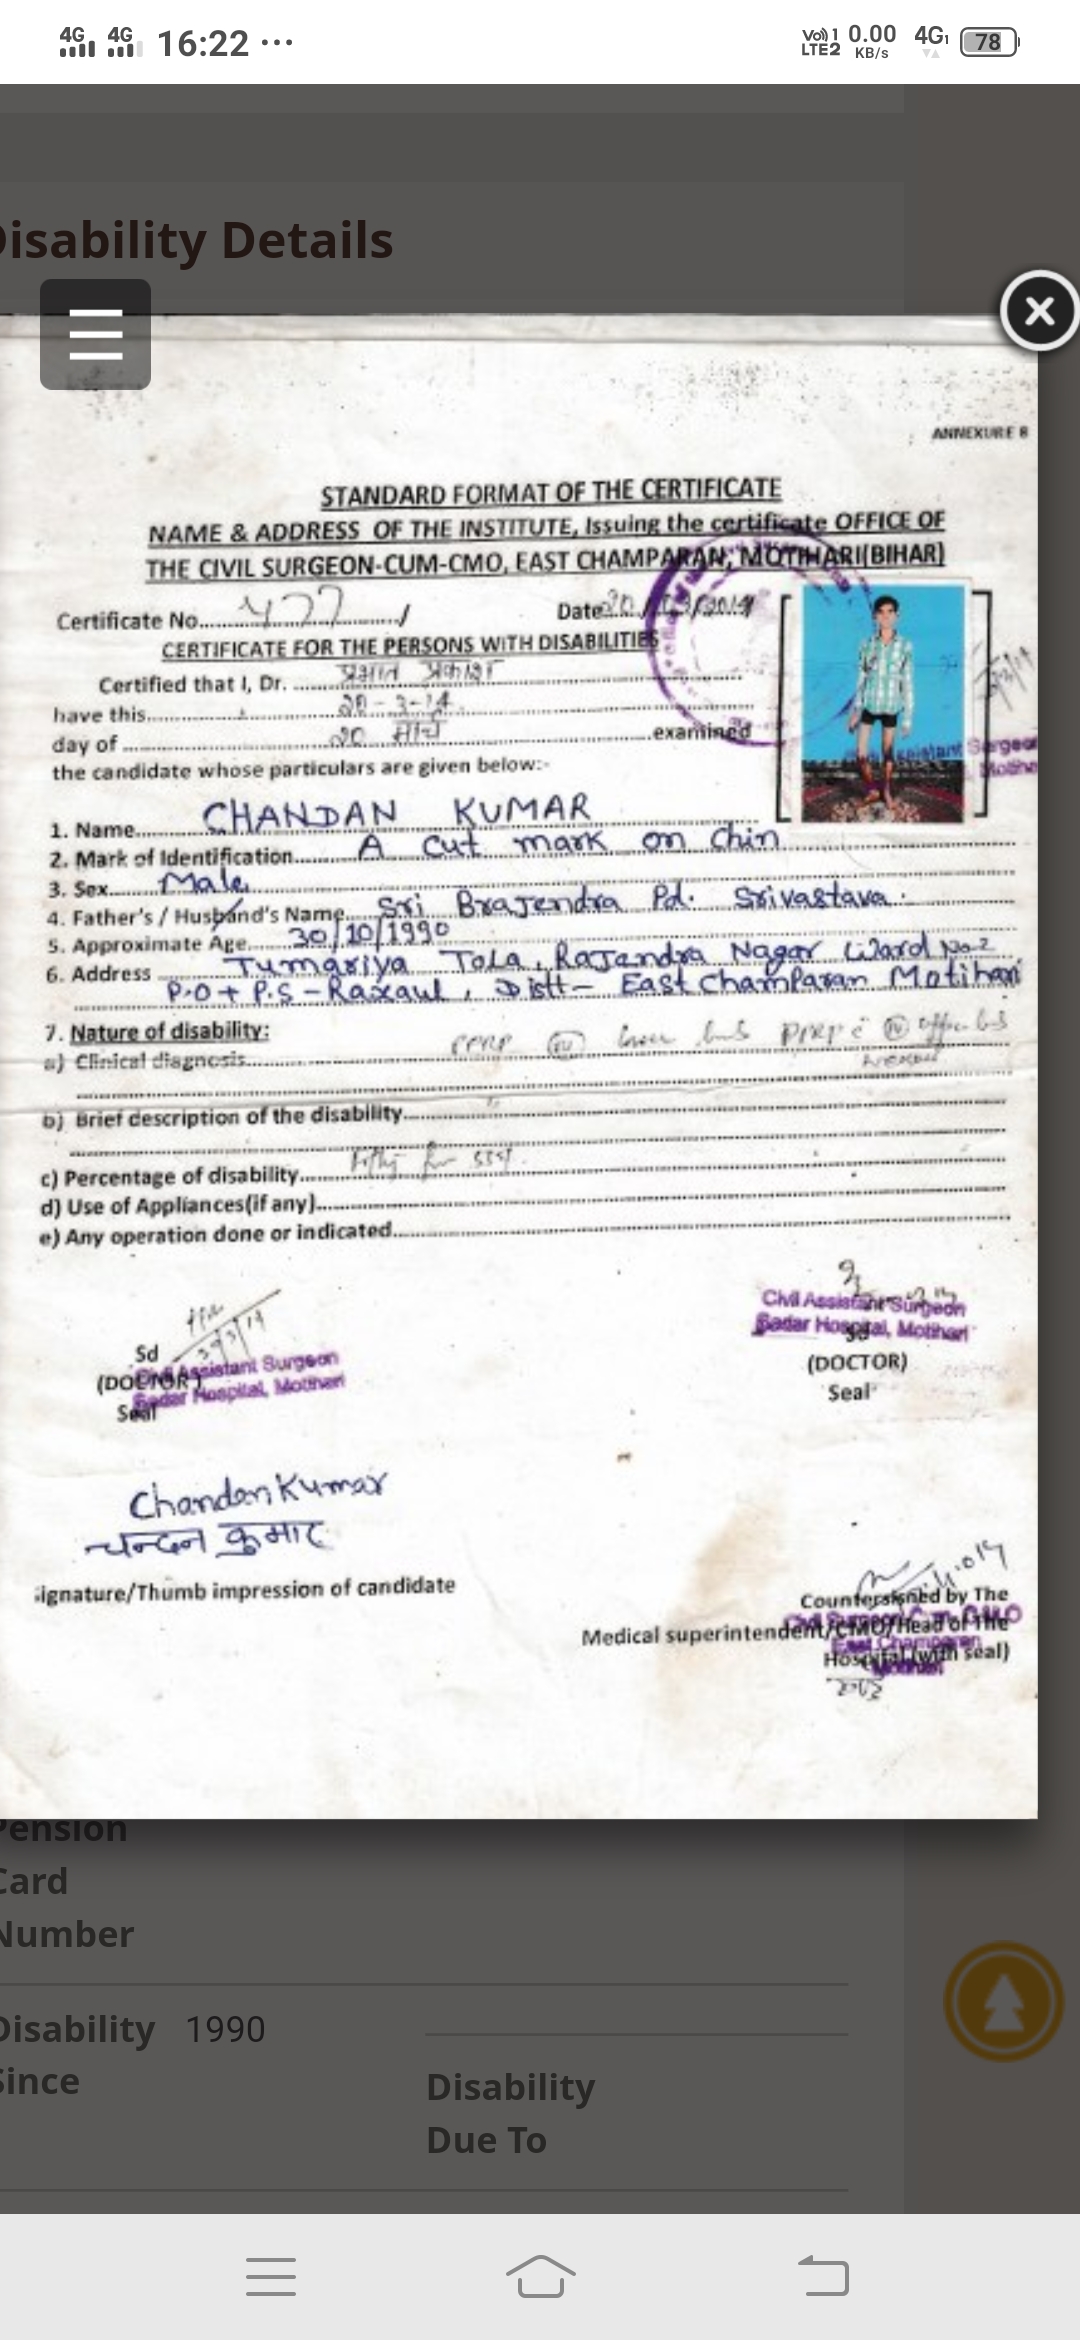 4G 4G 16:22 ... Vo)) 1 LTE2 0.00 KB/s 4G 78
Disability Details
ANNEXURE 8
STANDARD FORMAT OF THE CERTIFICATE
NAME & ADDRESS OF THE INSTITUTE, Issuing the certificate OFFICE OF
THE CIVIL SURGEON-CUM-CMO, EAST CHAMPARAN, MOTIHARI(BIHAR)
Certificate No. 477 Date 20/03/2014
CERTIFICATE FOR THE PERSONS WITH DISABILITIES
Certified that I, Dr. प्रभात प्रकाश
have this 20-3-14
day of 20 मार्च examined
the candidate whose particulars are given below:-
Assistant Surgeon
1. Name CHANDAN KUMAR
2. Mark of Identification A cut mark on chin
3. Sex Male
4. Father's / Husband's Name Sri Brajendra Pd. Srivastava.
5. Approximate Age 30/10/1990
6. Address Tumariya Tola, Rajendra Nagar Ward No-2
P.O + P.S - Raxaul, Distt- East Champaran Motihari
7. Nature of disability:
a) Clinical diagnosis
b) Brief description of the disability
c) Percentage of disability
d) Use of Appliances(if any)
e) Any operation done or indicated
Civil Assistant Surgeon
Sadar Hospital, Motihari
Sd
(DOCTOR)
Seal
Sd
Civil Assistant Surgeon
(DOCTOR)
Sadar Hospital, Motihari
Seal
Chandan Kumar
चन्दन कुमार
ignature/Thumb impression of candidate
Countersigned by The
Medical superintendent/CMO/Head of The
East Champaran
Hospital (with seal)
Motihari
Pension
Card
Number
Disability 1990
Since
Disability
Due To